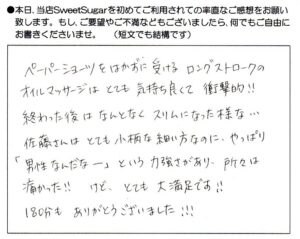 ●本日、当店SweetSugarを初めてご利用されての率直なご感想をお願い
致します。もし、ご要望やご不満などもございましたら、何でもご自由に
お書きくださいませ。（短文でも結構です）
ペーパーショーツをはかずに受ける ロングストロークの
オイルマッサージは とても 気持ち良くて 衝撃的!!
終わった後は なんとなく スリムになった様な…
佐藤さんは とても 小柄な 細い方なのに、やっぱり
「男性なんだなー」という 力強さがあり、所々は
痛かった!! けど、とても 大満足です!!
180分も ありがとうございました!!!